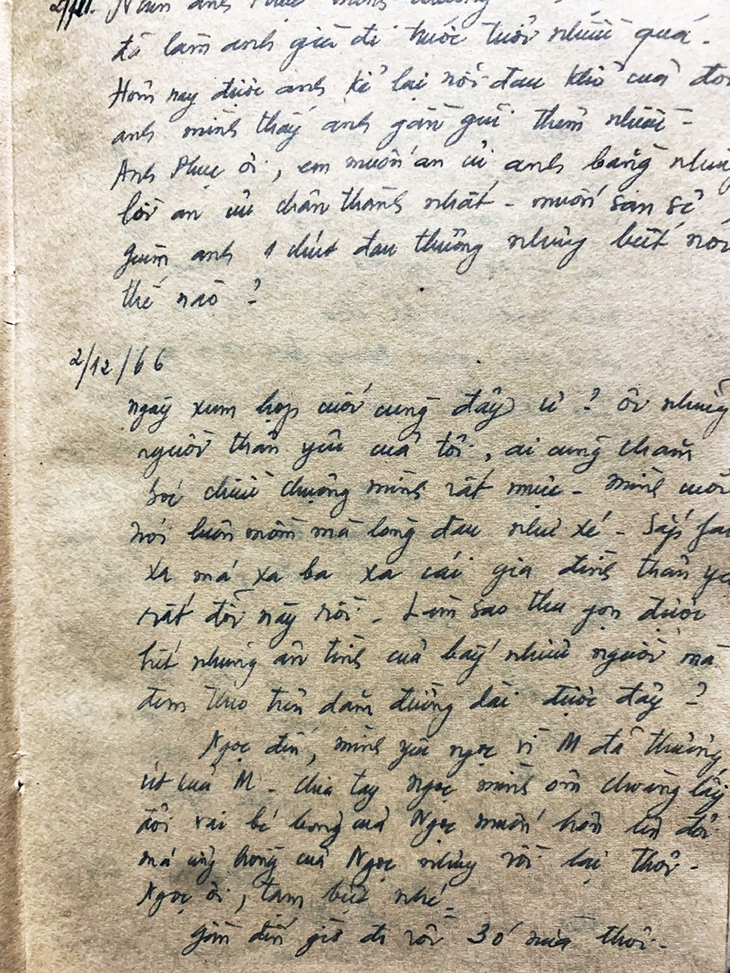 Nhìn anh Phúc mình thường
đã làm anh già đi trước tuổi nhiều quá -
Hôm nay được anh kể lại nỗi đau khổ của đời
anh mình thấy anh gần gũi thêm nhiều -
Anh Phúc ơi, em muốn an ủi anh bằng những
lời an ủi chân thành nhất - muốn san sẻ
giùm anh 1 chút đau thương nhưng biết nói
thế nào ?
2/12/66
ngày xum họp cuối cùng đây ư ? Ôi những
người thân yêu của tôi, ai cũng chăm
sóc chiều chuộng mình rất mực - mình cười
nói luôn mồm mà lòng đau như xé - Sắp
xa má xa ba xa cái gia đình thân yêu
rất đỗi này rồi - Làm sao thu gọn được
hết những ân tình của bấy nhiêu người mà
đem theo trên dặm đường dài được đây ?
Ngọc đến, mình yêu ngọc vì M đã thương
út của M - chia tay ngọc mình ôm choàng lấy
đôi vai bé bỏng của Ngọc muốn hôn lên đôi
má ửng hồng của Ngọc nhưng rồi lại thôi -
Ngọc ơi, tạm biệt nhé -
gần đến giờ đi rồi 30' nữa thôi -